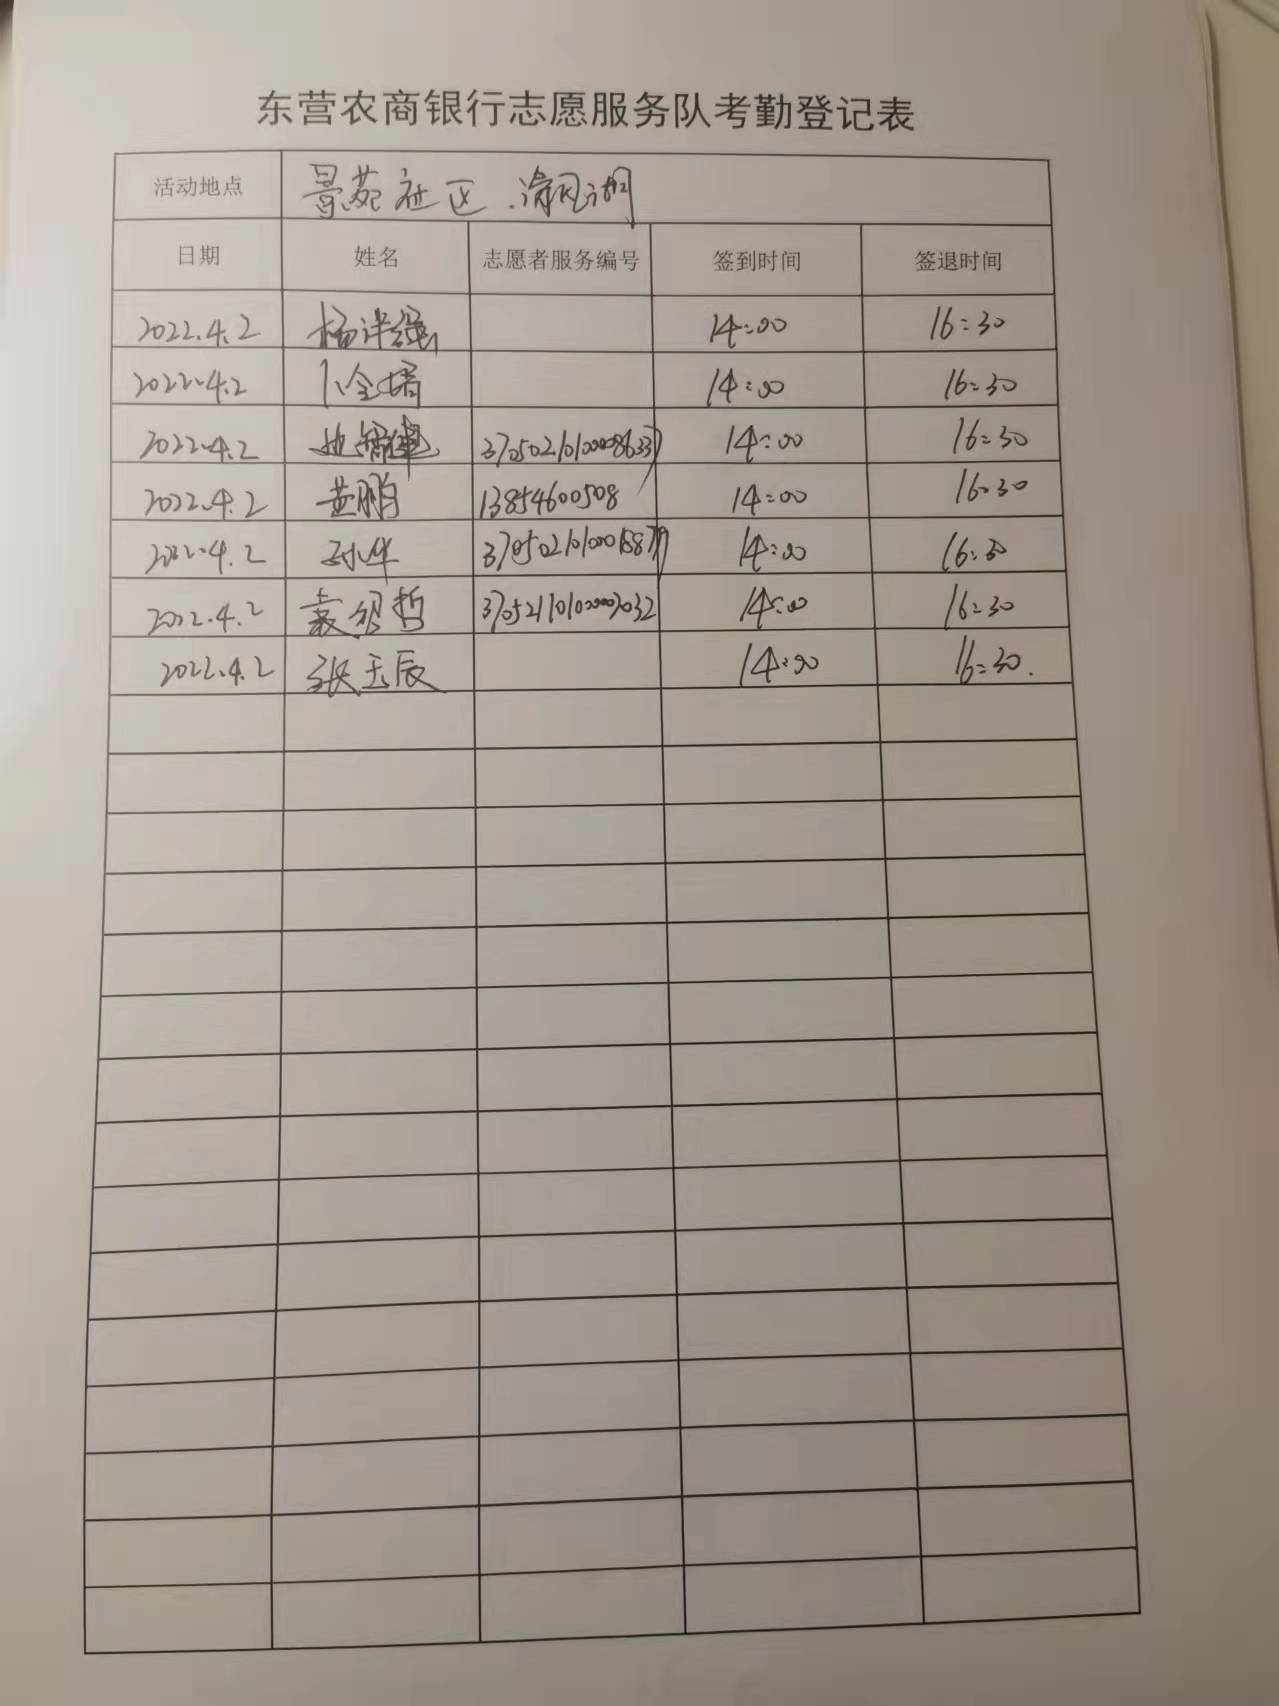 东营农商银行志愿服务队考勤登记表
活动地点 景苑社区.清风湖
日期 姓名 志愿者服务编号 签到时间 签退时间
2022.4.2 杨洋强 14:00 16:30
2022.4.2 14:00 16:30
2022.4.2 14:00 16:30
2022.4.2 黄鹏 13854600508 14:00 16:30
2022.4.2 孙华 14:00 16:30
2022.4.2 袁绍哲 14:00 16:30
2022.4.2 张玉辰 14:00 16:30.